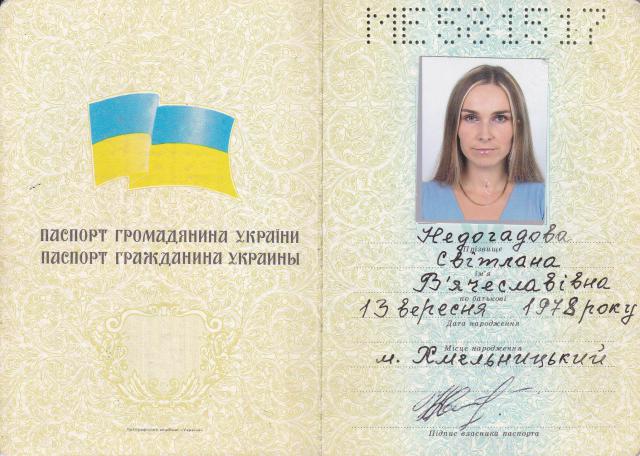 ПАСПОРТ ГРОМАДЯНИНА УКРАЇНИ
ПАСПОРТ ГРАЖДАНИНА УКРАИНЫ
МЕ 581517
Недогадова
Прізвище
Світлана
ім'я
В'ячеславівна
по батькові
13 вересня 1978 року
Дата народження
Місце народження
м. Хмельницький
Підпис власника паспорта